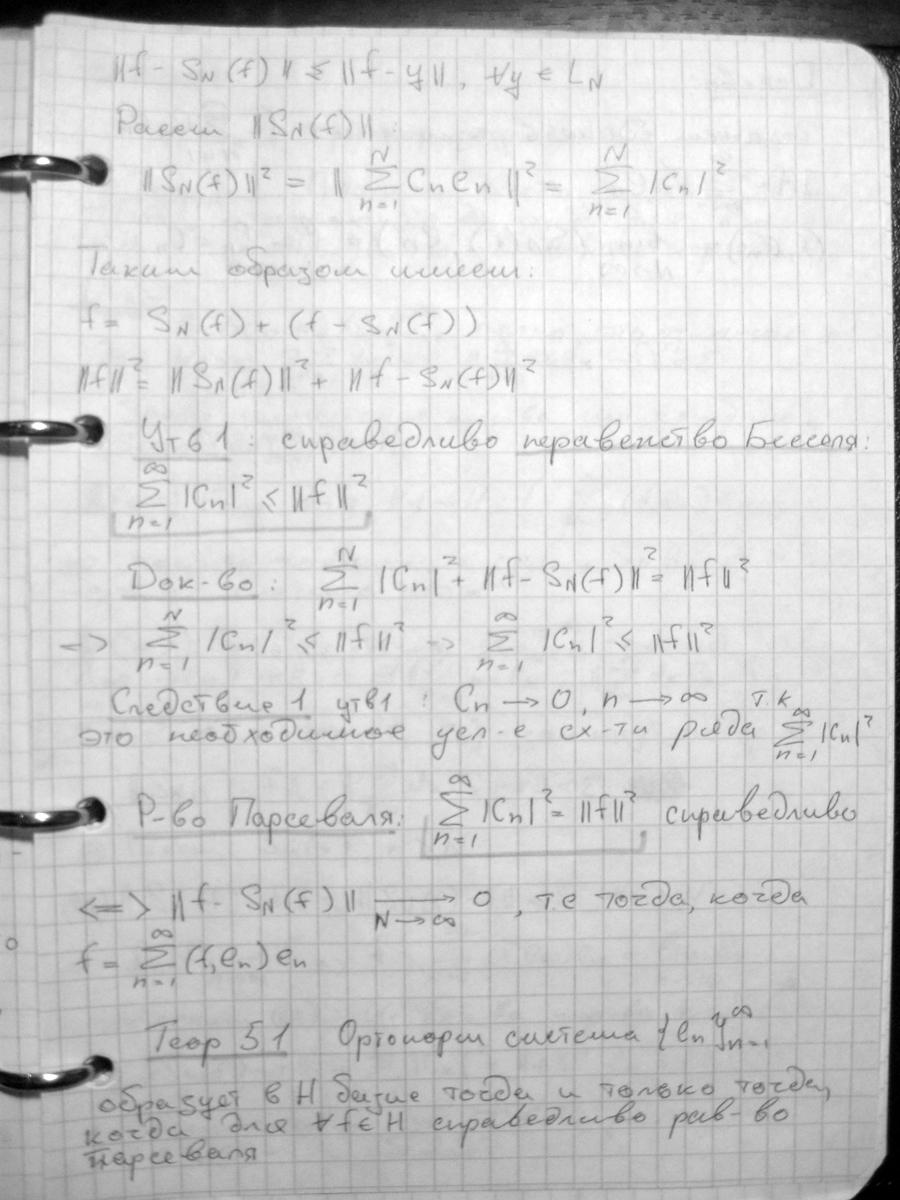 ‖f - S_N(f)‖ ≤ ‖f - y‖, ∀y ∈ L_N
Рассм ‖S_N(f)‖:
‖S_N(f)‖² = ‖ ∑_{n=1}^{N} C_n e_n ‖² = ∑_{n=1}^{N} |C_n|²
Таким образом имеем:
f = S_N(f) + (f - S_N(f))
‖f‖² = ‖S_N(f)‖² + ‖f - S_N(f)‖²
Утв 1: справедливо неравенство Бесселя:
∑_{n=1}^{∞} |C_n|² ≤ ‖f‖²
Док-во: ∑_{n=1}^{N} |C_n|² + ‖f - S_N(f)‖² = ‖f‖²
-> ∑_{n=1}^{N} |C_n|² ≤ ‖f‖² -> ∑_{n=1}^{∞} |C_n|² ≤ ‖f‖²
Следствие 1 утв1: C_n → 0, n → ∞ т.к
это необходимое усл-е сх-ти ряда ∑_{n=1}^{∞} |C_n|²
Р-во Парсеваля: ∑_{n=1}^{∞} |C_n|² = ‖f‖² справедливо
<=> ‖f - S_N(f)‖ →_{N→∞} 0, т.е тогда, когда
f = ∑_{n=1}^{∞} (f, e_n) e_n
Теор 51 Ортонорм система {e_n}_{n=1}^{∞}
образует в H базис тогда и только тогда,
когда для ∀f∈H справедливо рав-во
парсеваля